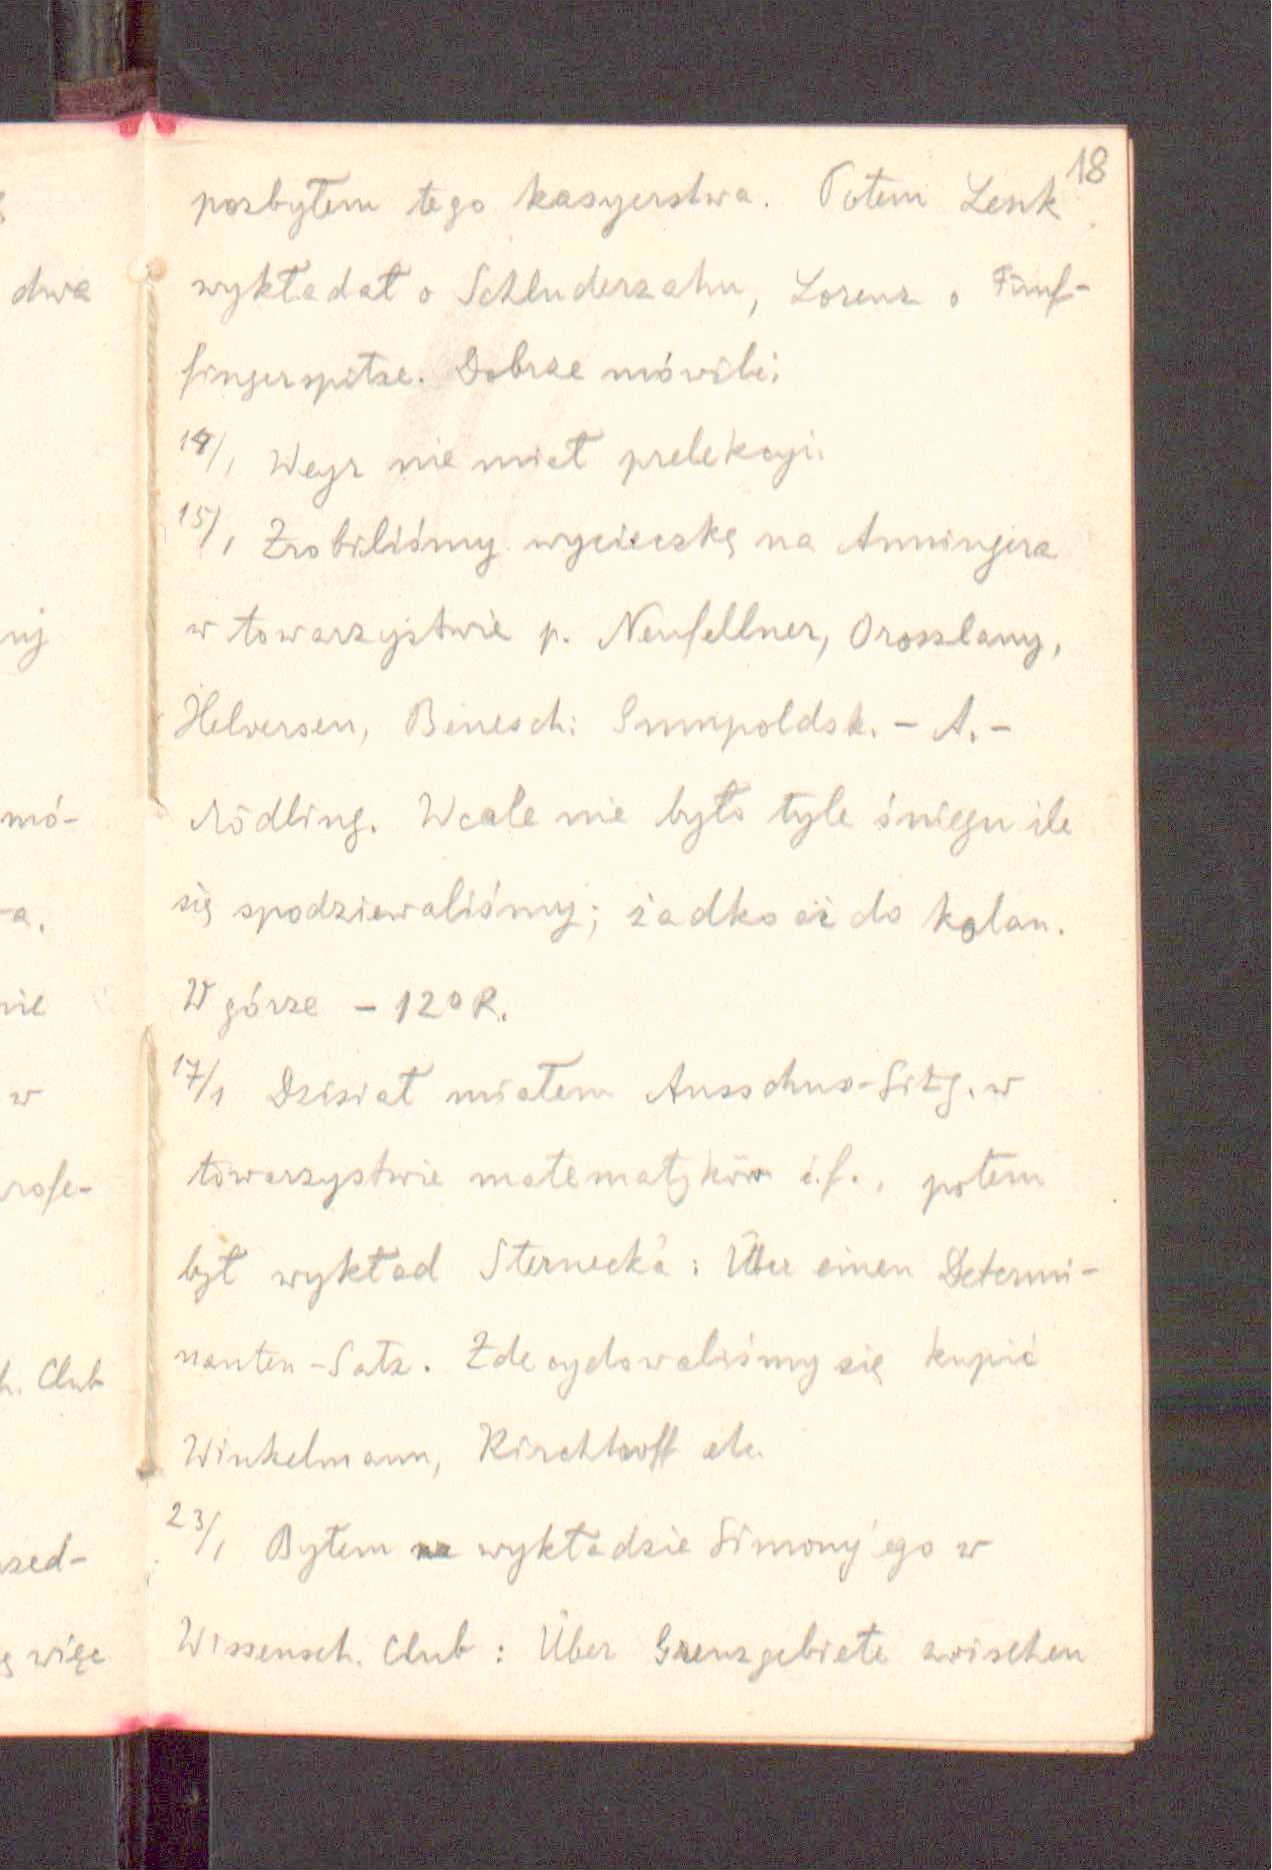 18
pozbyłem tego kasyerstwa. Potem Lenk
wykładał o Schluderzahn, Lorenz o Fünf-
fingerspitze. Dobrze mówili.
14/1 Weyr nie miał prelekcyi.
15/1 Zrobiliśmy wycieczkę na Anningera
w towarzystwie p. Neufellner, Oroszlany,
Helversen, Benesch: Gumpoldsk. – A. –
Mödling. Wcale nie było tyle śniegu ile
się spodziewaliśmy; żadko aż do kolan.
W górze – 12° R.
17/1 Dzisiał miałem Ausschuss-Sitzg. w
towarzystwie matematyków i.f., potem
był wykład Sterneck'a: Über einen Determi-
nanten-Satz. Zdecydowaliśmy się kupić
Winkelmann, Kirchhoff etc.
23/1 Byłem na wykładzie Simony'ego w
Wissensch. Club: Über Grenzgebiete zwischen
dwa
nij
mó-
-a.
nie
w
rofe-
h. Club
szed-
ę więc